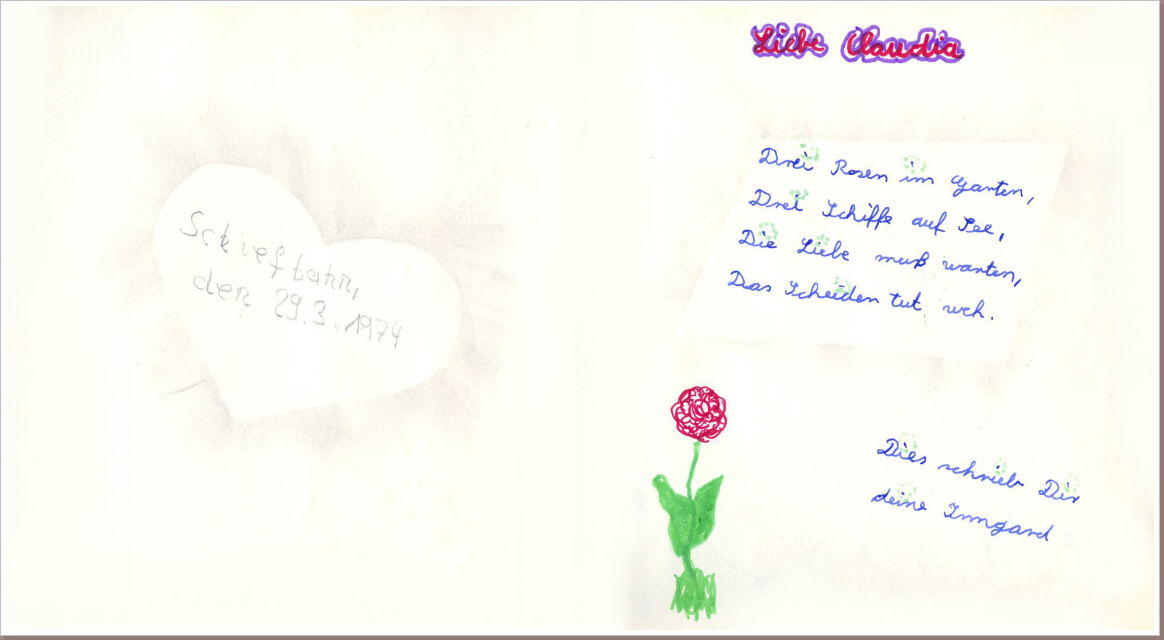 Schiefbahn,
den 29.3.1974
Liebe Claudia
Drei Rosen im Garten,
Drei Schiffe auf See,
Die Liebe muß warten,
Das Scheiden tut weh.
Dies schrieb Dir
deine Irmgard